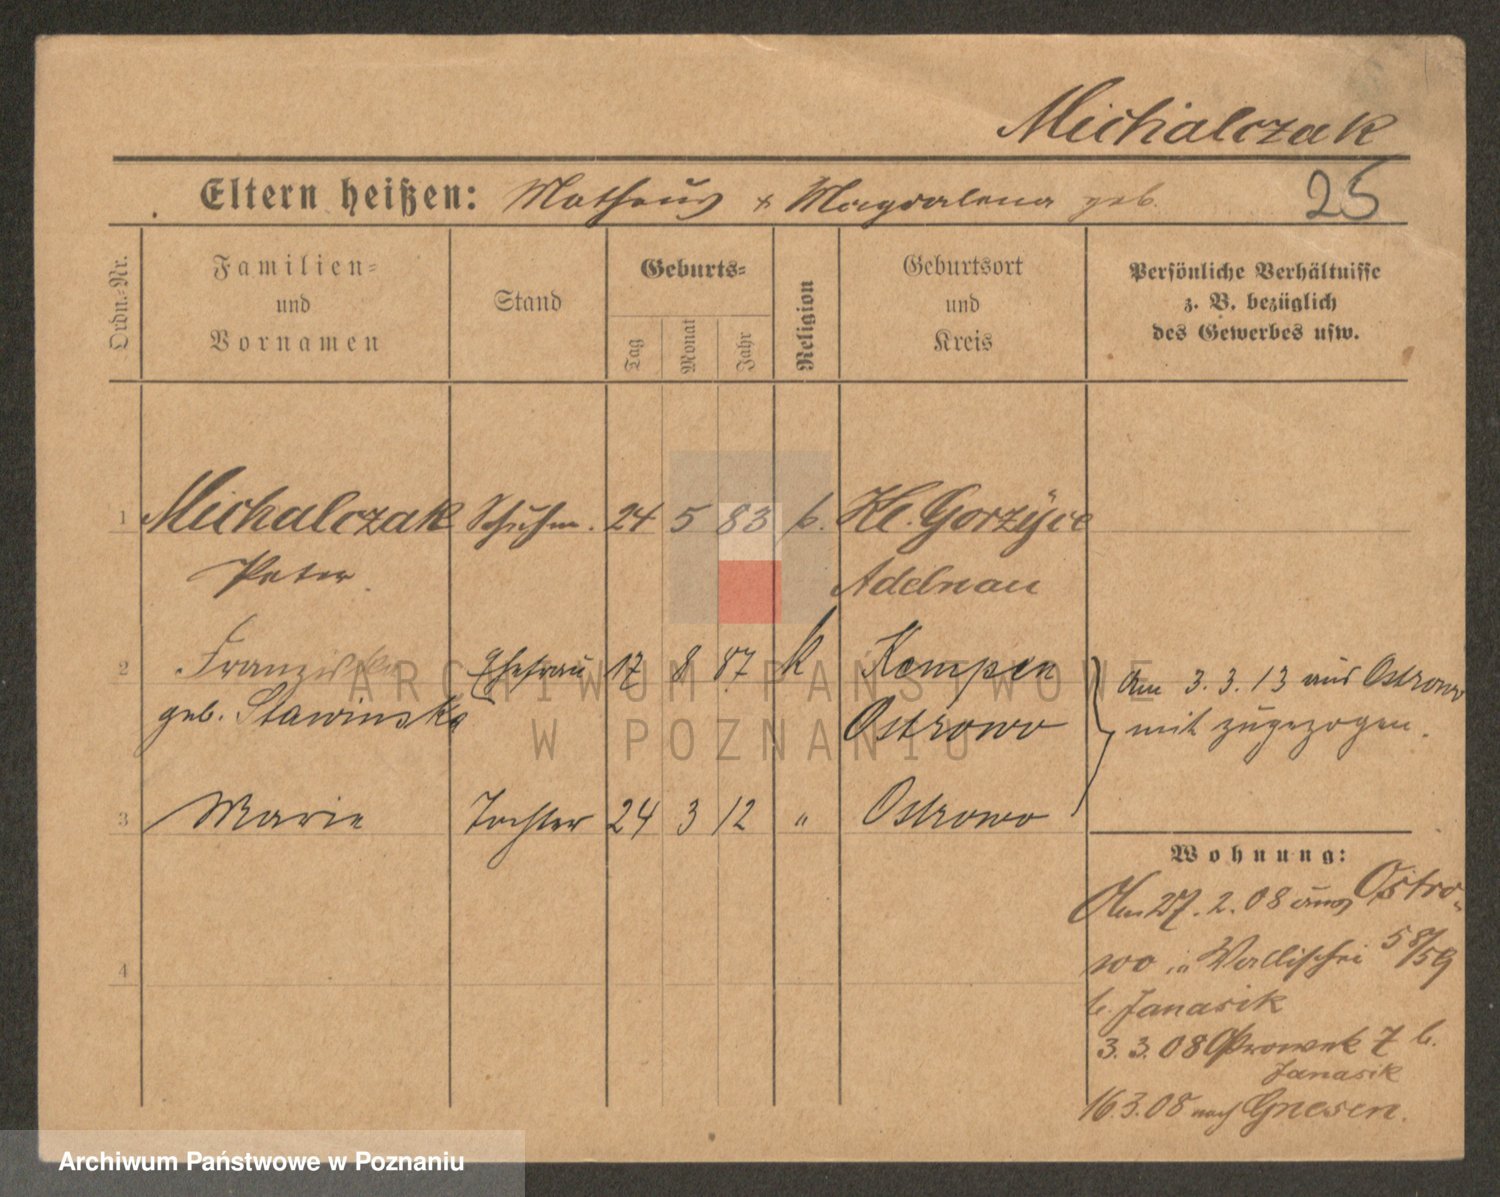 Michalczak
Eltern heißen: Matheus & Magdalena geb.
25
Ordn.-Nr.
Familien-
und
Vornamen
Stand
Geburts-
Tag
Monat
Jahr
Religion
Geburtsort
und
Kreis
Persönliche Verhältnisse
z. B. bezüglich
des Gewerbes usw.
1 Michalczak Schuhm. 24 5 83 k. Kl. Gorzyce
Peter Adelnau
2 Franziska Ehefrau 17 8 87 k Kempen
geb. Stawinska Ostrowo
Am 3.3.13 aus Ostrowo
mit zugezogen.
3 Marie Tochter 24 3 12 " Ostrowo
Wohnung:
Am 27.2.08 aus Ostro-
wo in Wallischei 58/59
b. Janasik
3.3.08 7 b.
Janasik
16.3.08 nach Gnesen.
4
ARCHIWUM PAŃSTWOWE
W POZNANIU
Archiwum Państwowe w Poznaniu